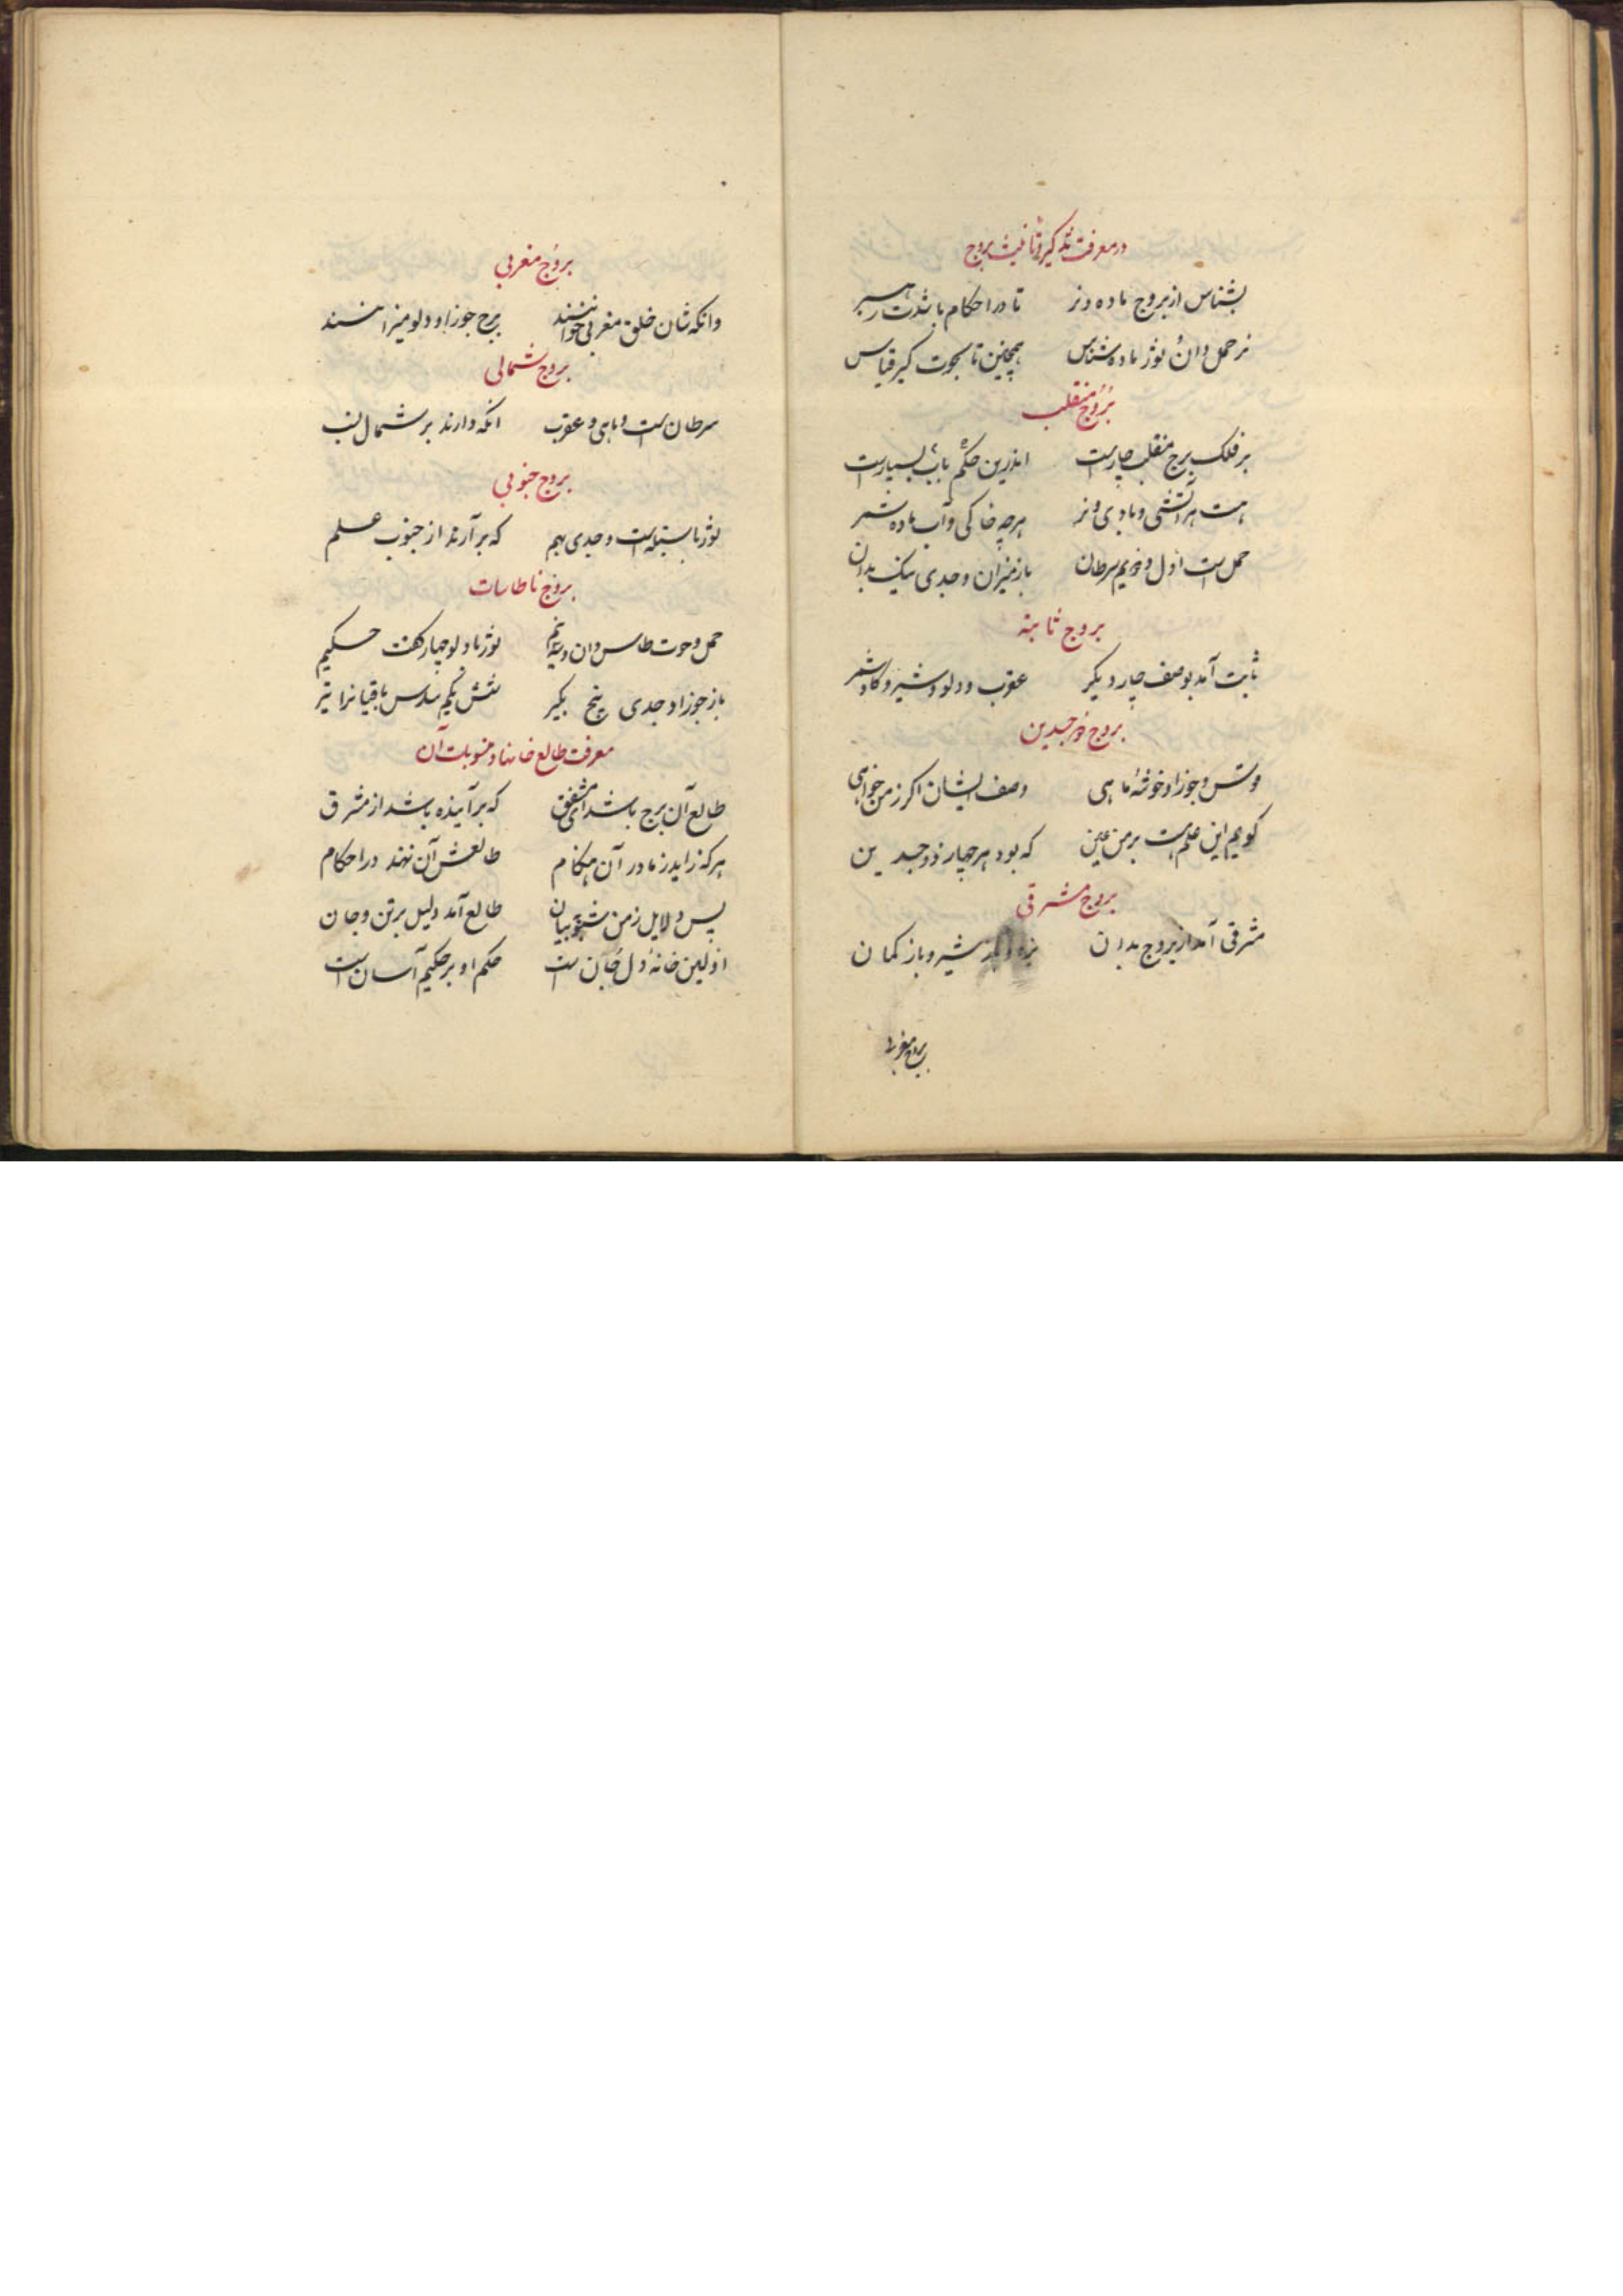 در معرفت تذکیر و تأنیث بروج
بشناس از بروج ماده و نر تا در احکام باشدت رهبر
نر حمل دان و ثور ماده شناس همچنین تا بحوت گیر قیاس
بروج منقلب
بر فلک برج منقلب چارست اندرین حکم باب بسیارست
هست هر آتشی و بادی و نر هرچه خاکی و آب ماده شمر
حمل است اول و دویم سرطان باز میزان و جدی نیک بدان
بروج ثابته
ثابت آمد بوصف چار دیگر عقرب و دلو و شیر و گاو شمر
بروج ذوجسدین
قوس و جوزا و خوشه ماهی وصف ایشان اگر ز من خواهی
گویم این علم هست بر من عین که بود هر چهار ذوجسدین
بروج مشرقی
مشرقی آمد از بروج بدان بره و شیر و باز کمان
بروج مغربی
بروج مغربی
وانکه شان خلق مغربی خوانند برج جوزا و دلو میزانند
بروج شمالی
سرطان است و ماهی و عقرب آنکه دارند بر شمال نسب
بروج جنوبی
ثور با سنبله است و جدی بهم که برآرند از جنوب علم
بروج ناطاسات
حمل و حوت طاس دان ثور با دلو چهار گفت حکیم
باز جوزا و جدی پنج بگیر شش یکم باقیانرا تیر
معرفت طالع خانها و منسوبات آن
طالع آن برج باشد ای مشفق که برآینده باشد از مشرق
هرکه زاید ز مادر آن هنگام طالعش آن نهند در احکام
پس دلایل ز من شنو به بیان طالع آمد دلیل بر تن و جان
اولین خانه دل جان است حکم او بر حکیم آسان است